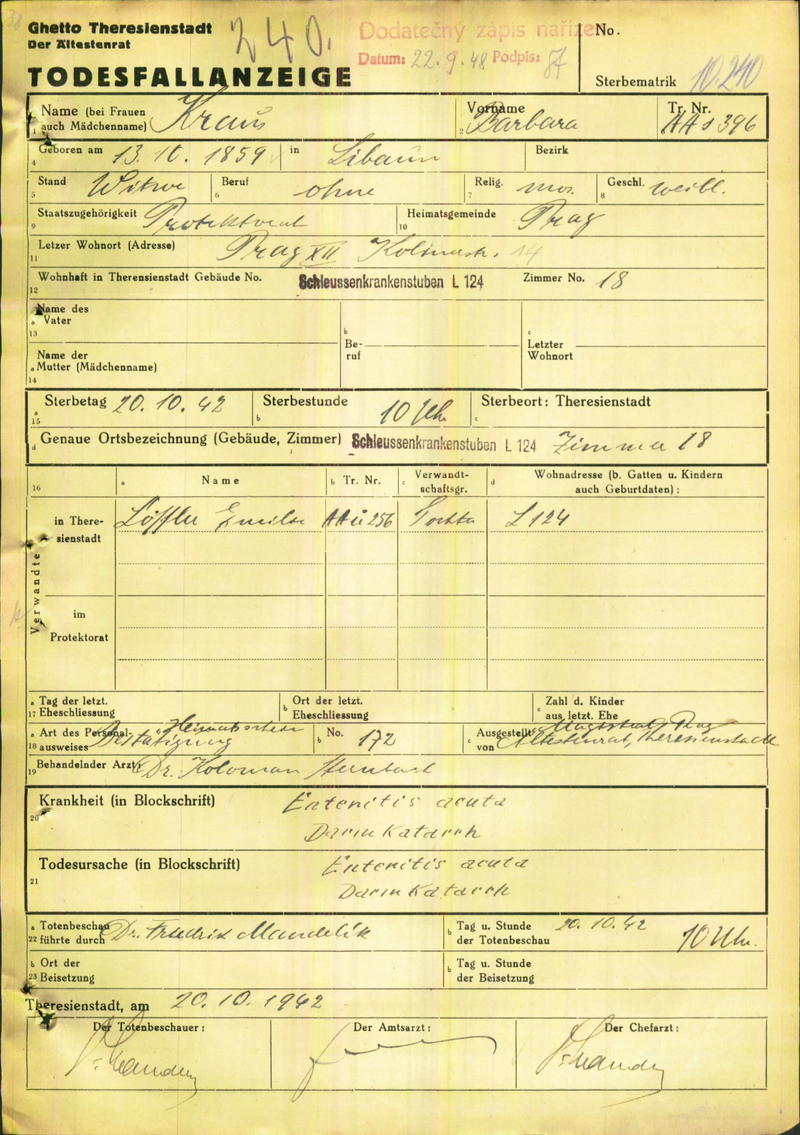 Ghetto Theresienstadt
Der Ältestenrat
TODESFALLANZEIGE
240.
Dodatečný zápis naříze
Datum: 22.9.48 Podpis:
No.
Sterbematrik 10.240
Name (bei Frauen auch Mädchenname) Kraus
Vorname Barbara
Tr. Nr. AAs 396
Geboren am 13.10.1859 in Libaun Bezirk
Stand Witwe Beruf ohne Relig. mos. Geschl. weibl.
Staatszugehörigkeit Protektorat Heimatsgemeinde Prag
Letzer Wohnort (Adresse) Prag XII 14
Wohnhaft in Therensienstadt Gebäude No. Schleussenkrankenstuben L 124 Zimmer No. 18
Name des Vater
Be-ruf
Letzter Wohnort
Name der Mutter (Mädchenname)
Sterbetag 20.10.42 Sterbestunde 10 Uh. Sterbeort: Theresienstadt
Genaue Ortsbezeichnung (Gebäude, Zimmer) Schleussenkrankenstuben L 124 Zimmer 18
Name Tr. Nr. Verwandt-schaftsgr. Wohnadresse (b. Gatten u. Kindern auch Geburtdaten):
Verwandte
in There-sienstadt Löffler Emilie AAü 256 Tochter L 124
im Protektorat
Tag der letzt. Eheschliessung
Ort der letzt. Eheschliessung
Zahl d. Kinder aus letzt. Ehe
Art des Personal-ausweises Heimatschein Bestätigung
No. 172
Ausgestellt von Magistrat Prag Ältestenrat, Theresienstadt
Behandelnder Arzt Dr. Koloman Sternbach
Krankheit (in Blockschrift) Enteritis acuta
Darmkatarrh
Todesursache (in Blockschrift) Enteritis acuta
Darmkatarrh
Totenbeschau führte durch Dr. Friedrik Mandelik
Tag u. Stunde der Totenbeschau 20.10.42 10 Uhr.
Ort der Beisetzung
Tag u. Stunde der Beisetzung
Theresienstadt, am 20.10.1942
Der Totenbeschauer:
Der Amtsarzt:
Der Chefarzt: